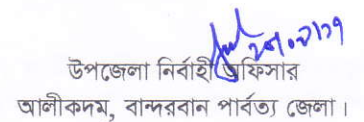 উপজেলা নির্বাহী অফিসার
আলীকদম, বান্দরবান পার্বত্য জেলা।